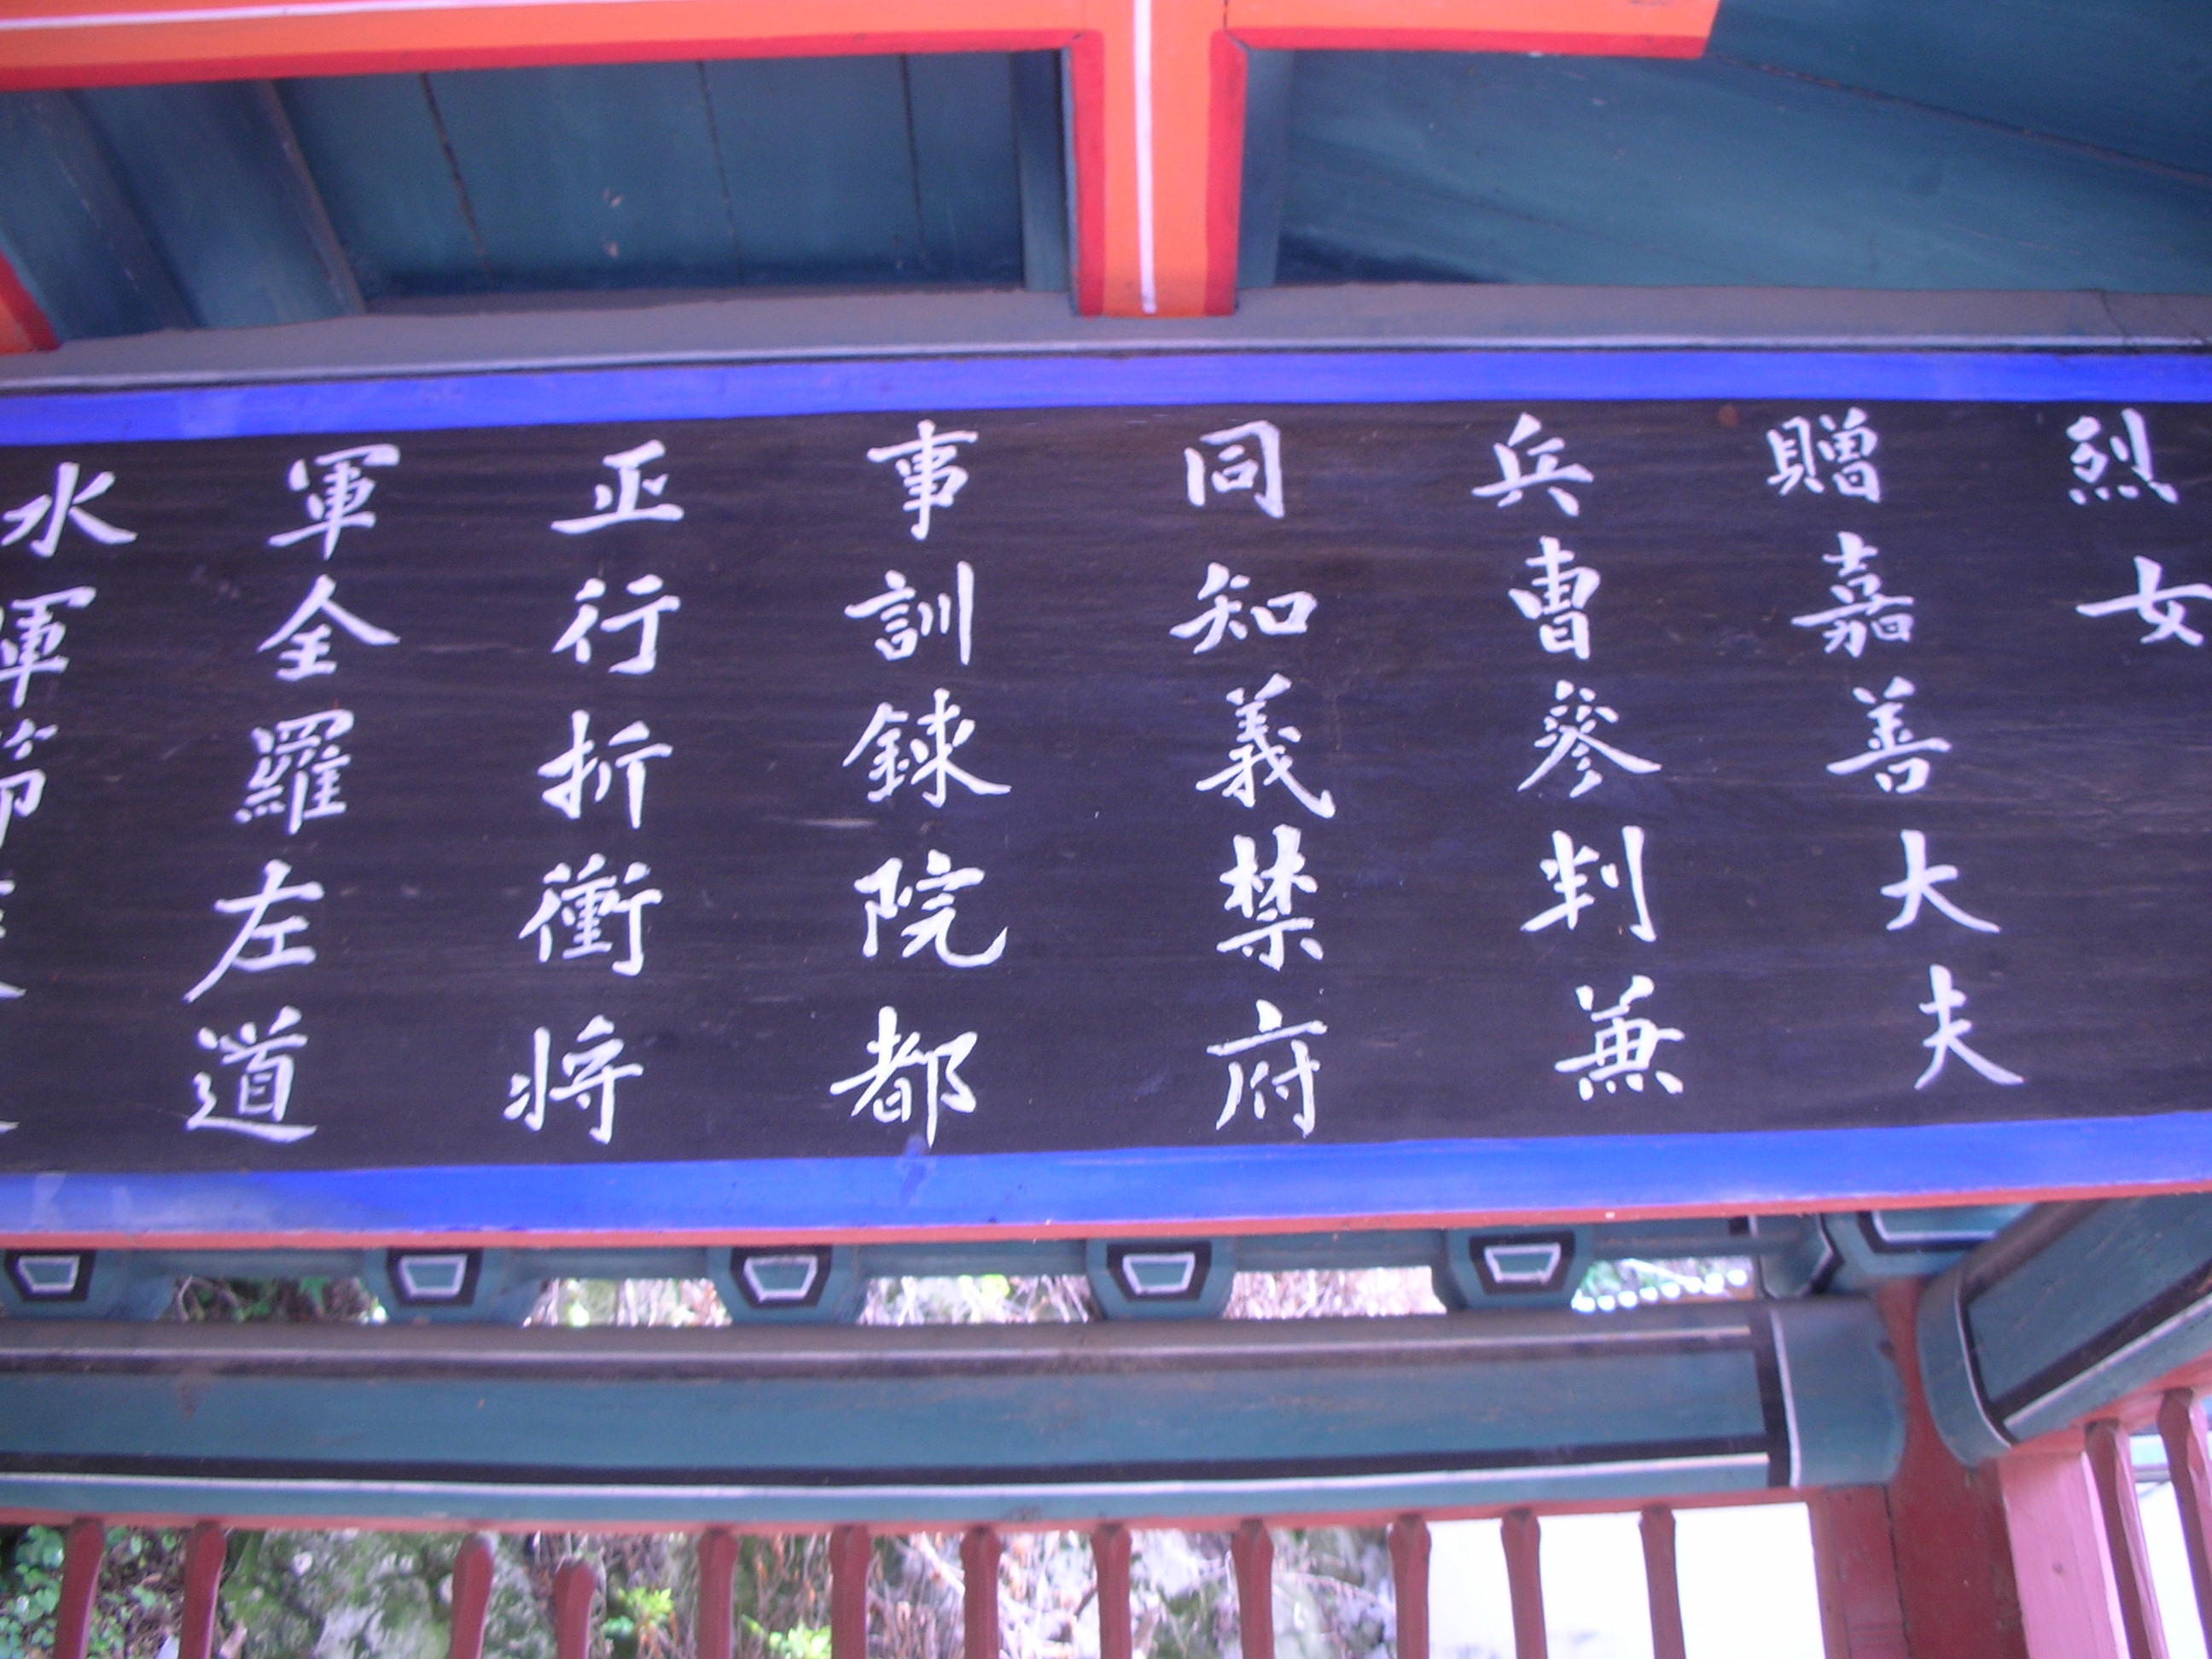 烈女
贈嘉善大夫
兵曹參判兼
同知義禁府
事訓鍊院都
正行折衝將
軍全羅左道
水軍節